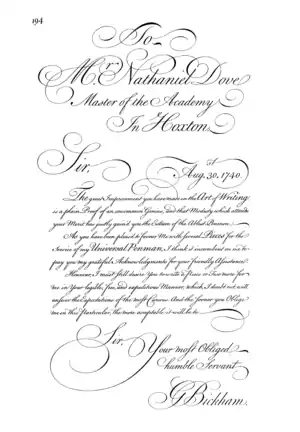 194
To
Mr. Nathaniel Dove
Master of the Academy
In Hoxton
Sir,
Aug. 30. 1740.
The great Improvement you have made in the Art of Writing
is a plain Proof of an uncommon Genius, and that Modesty which attends
your Merit has justly gain'd you the Esteem of the Ablest Penmen.
As you have been pleased to favour Me with several Pieces for the
Service of my Universal Penman, I think it incumbent on me to
pay you my grateful Acknowledgments for your friendly Assistance.
However, I must still desire You to write a Piece or Two more for
me in Your legible, free, and expeditious Manner, which I doubt not will
answer the Expectations of the most Curious. And the sooner you Oblige
me in this Particular, the more acceptable it will be to
Sir,
Your most Obliged
humble Servant
G Bickham.